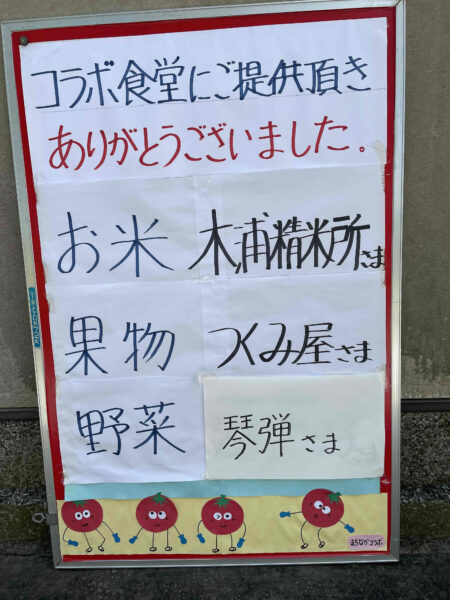 コラボ食堂にご提供頂き
ありがとうございました。
お米 木浦精米所さま
果物 つくみ屋さま
野菜 琴弾さま